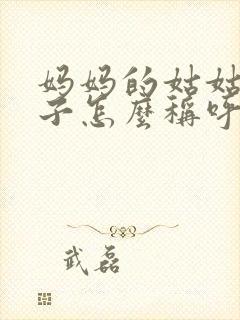 妈妈的姑姑
子怎麼稱呼
武磊